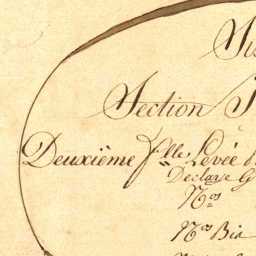 Section
Deuxième flle. Levée
Declare G
Nos
Nos Bia